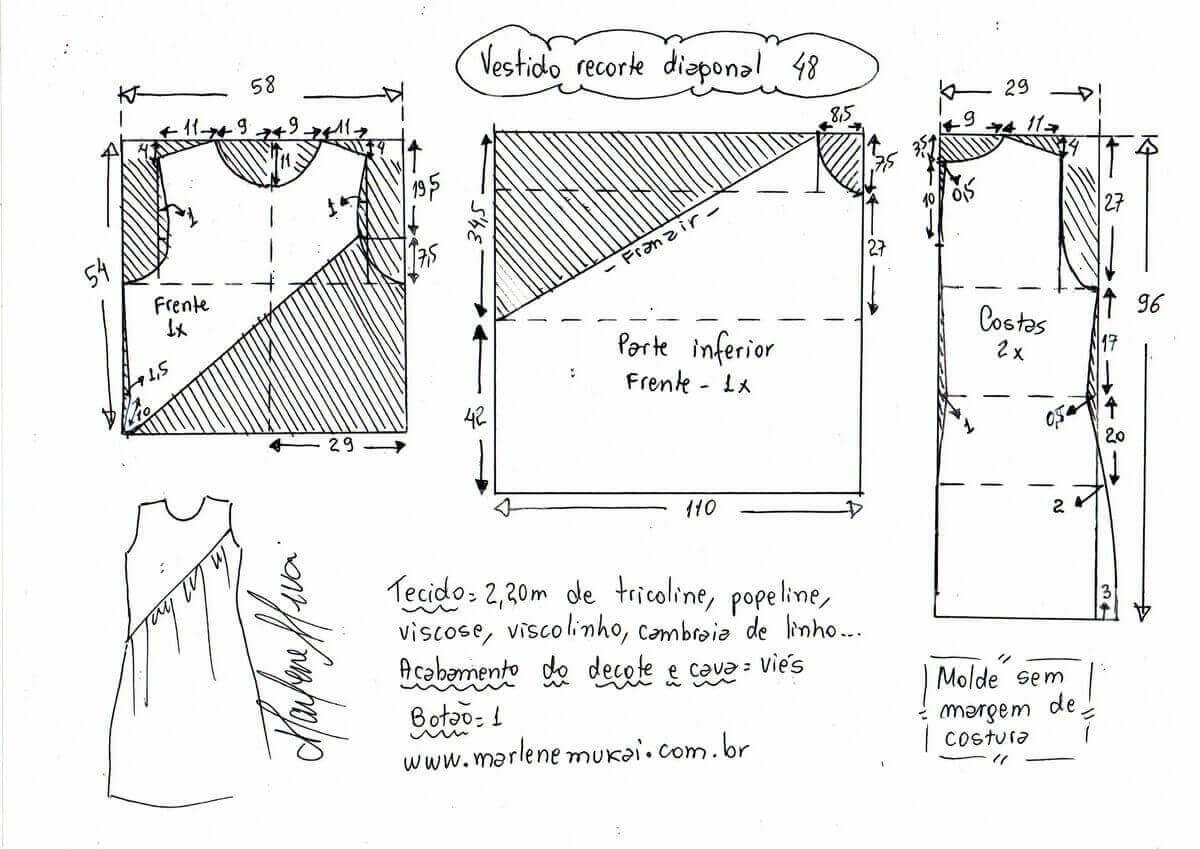 Vestido recorte diagonal 48
58
11 9 9 11
4 11 4
19,5
1 1
7,5
54
Frente
1x
1,5
10
29
8,5
7,5
34,5
- Franzir -
27
Parte inferior
Frente - 1x
42
110
29
9 11
3,5 4
10 0,5
27
96
Costas
2x
17
1 0,5
20
2
3
Tecido = 2,20m de tricoline, popeline,
viscose, viscolinho, cambraia de linho...
Acabamento do decote e cava = viés
Botão = 1
www.marlenemukai.com.br
Molde sem
margem de
costura
Marlene Mukai